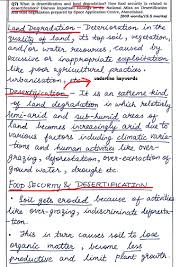 Q7) What is desertification and land degradation? How food security is related to
desertification? Discuss important findings of the National Atlas on Desertification
and land degradation prepared by Space Application Centre
Land Degradation - Deterioration in the
quality of land, its top soil, vegetation,
and/or water resources, caused by
excessive or inappropriate exploitation
like poor agricultural practices,
urbanisation, etc.
underline keywords
Desertification - It is an extreme kind
of land degradation in which relatively
semi-arid and sub-humid areas of
land becomes increasingly arid due to
various factors including climatic varia-
tions and human activities like over-
grazing, deforestation, over-extraction of
ground water, drought etc.
FOOD SECURITY & DESERTIFICATION
- Soil gets eroded because of activities
like over-grazing, indiscriminate
- This in turn causes soil to lose
organic matter, become less
productive and limit plant growth.